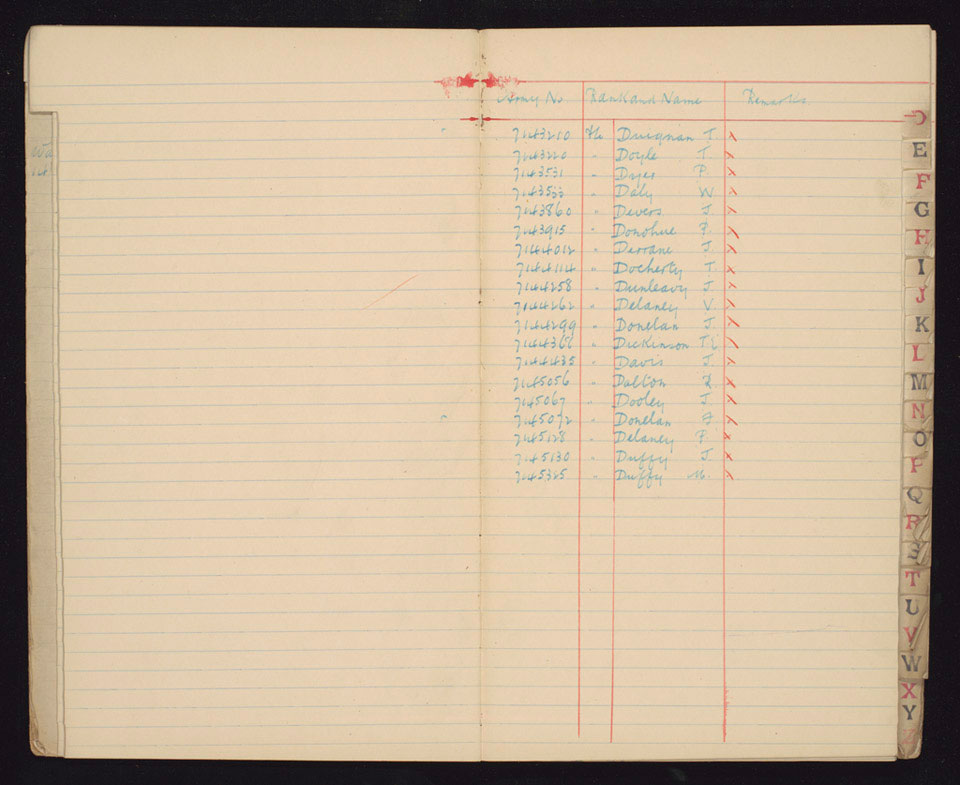 Army No Rank and Name Remarks.
7143210 Pte Duignan T. x
7143220 " Doyle T. x
7143531 " Dyer P. x
7143533 " Daly W x
7143860 " Devers J. x
7143915 " Donohue P. x
7144012 " Derrane J. x
7144114 " Docherty T. x
7144258 " Dunleavy J. x
7144262 " Delaney V. x
7144299 " Donelan J. x
7144368 " Dickinson x
7144435 " Davis J. x
7145056 " Dalton x
7145067 " Dooley J. x
7145072 " Donelan x
7145128 " Delaney P. x
7145130 " Duffy J. x
7145325 " Duffy M. x
D
E
F
G
H
I
J
K
L
M
N
O
P
Q
R
S
T
U
V
W
X
Y